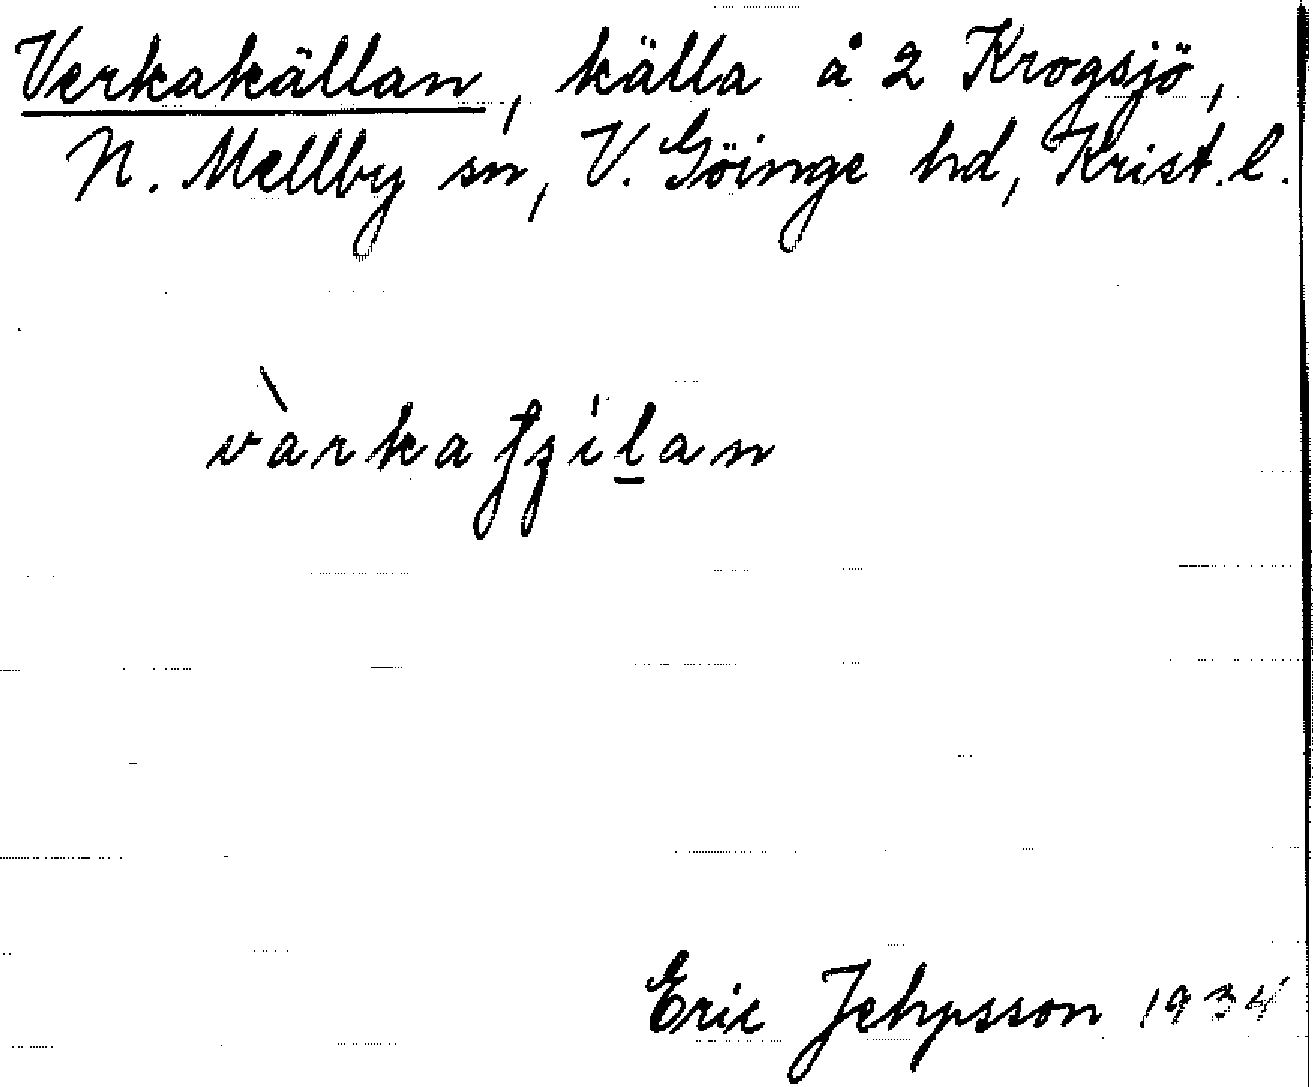 Verkakällan, källa å 2 Krogsjö,
N. Mellby sn, V. Göinge hd, Krist. l.
Eric Jehpsson 1934